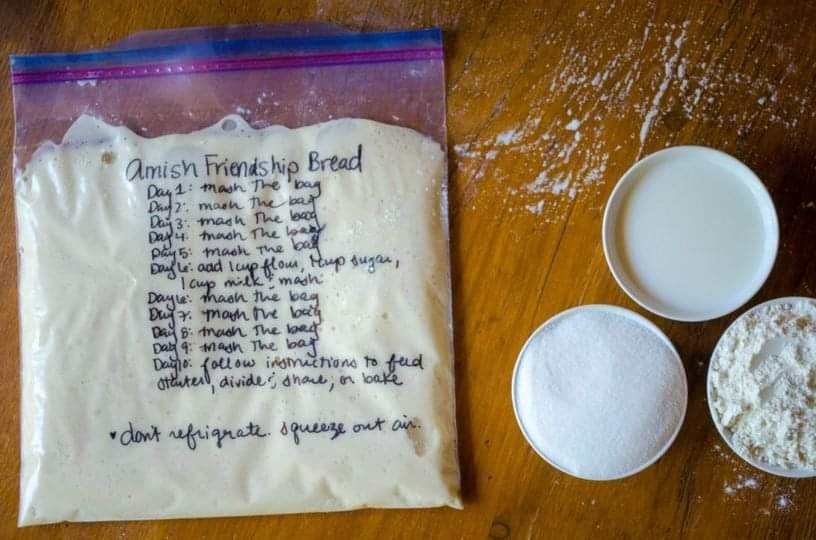 Amish Friendship Bread
Day 1: mash the bag
Day 2: mash the bag
Day 3: mash the bag
Day 4: mash the bag
Day 5: mash the bag
Day 6: add 1 cup flour, 1 cup sugar,
1 cup milk; mash
Day 6: mash the bag
Day 7: mash the bag
Day 8: mash the bag
Day 9: mash the bag
Day 10: follow instructions to feed
starter, divide; share; or bake
• don't refrigrate. squeeze out air.